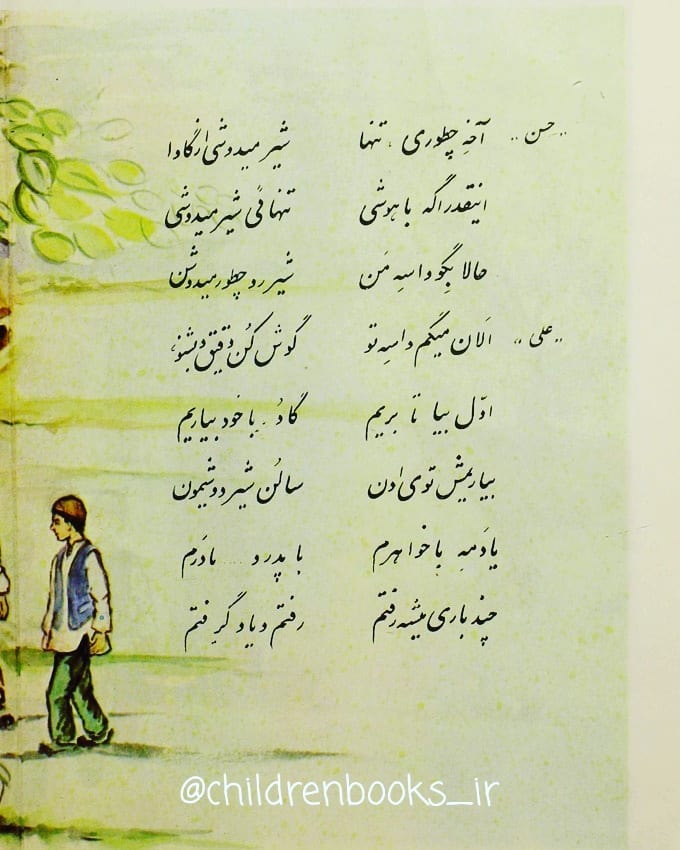 ,, حسن ,, آخه چطوری ، تنها شیر میدوشی ازگاوا
اینقدر اگه باهوشی تنهائی شیر میدوشی
حالا بگو واسهِ مَن شیر رو چطور میدوشن
,, علی ,, اَلان میگم واسه تو گوش کُن دقیق و بشنو،
اوّل بیا تا بریم گاوُ با خود بیاریم
بیاریمش توی اون سالُن شیر دوشیمون
یادَمهِ با خواهرم با پدر و ..... مادَرم
چند باری میشه رفتم رفتم و یاد گرفتم
@childrenbooks_ir